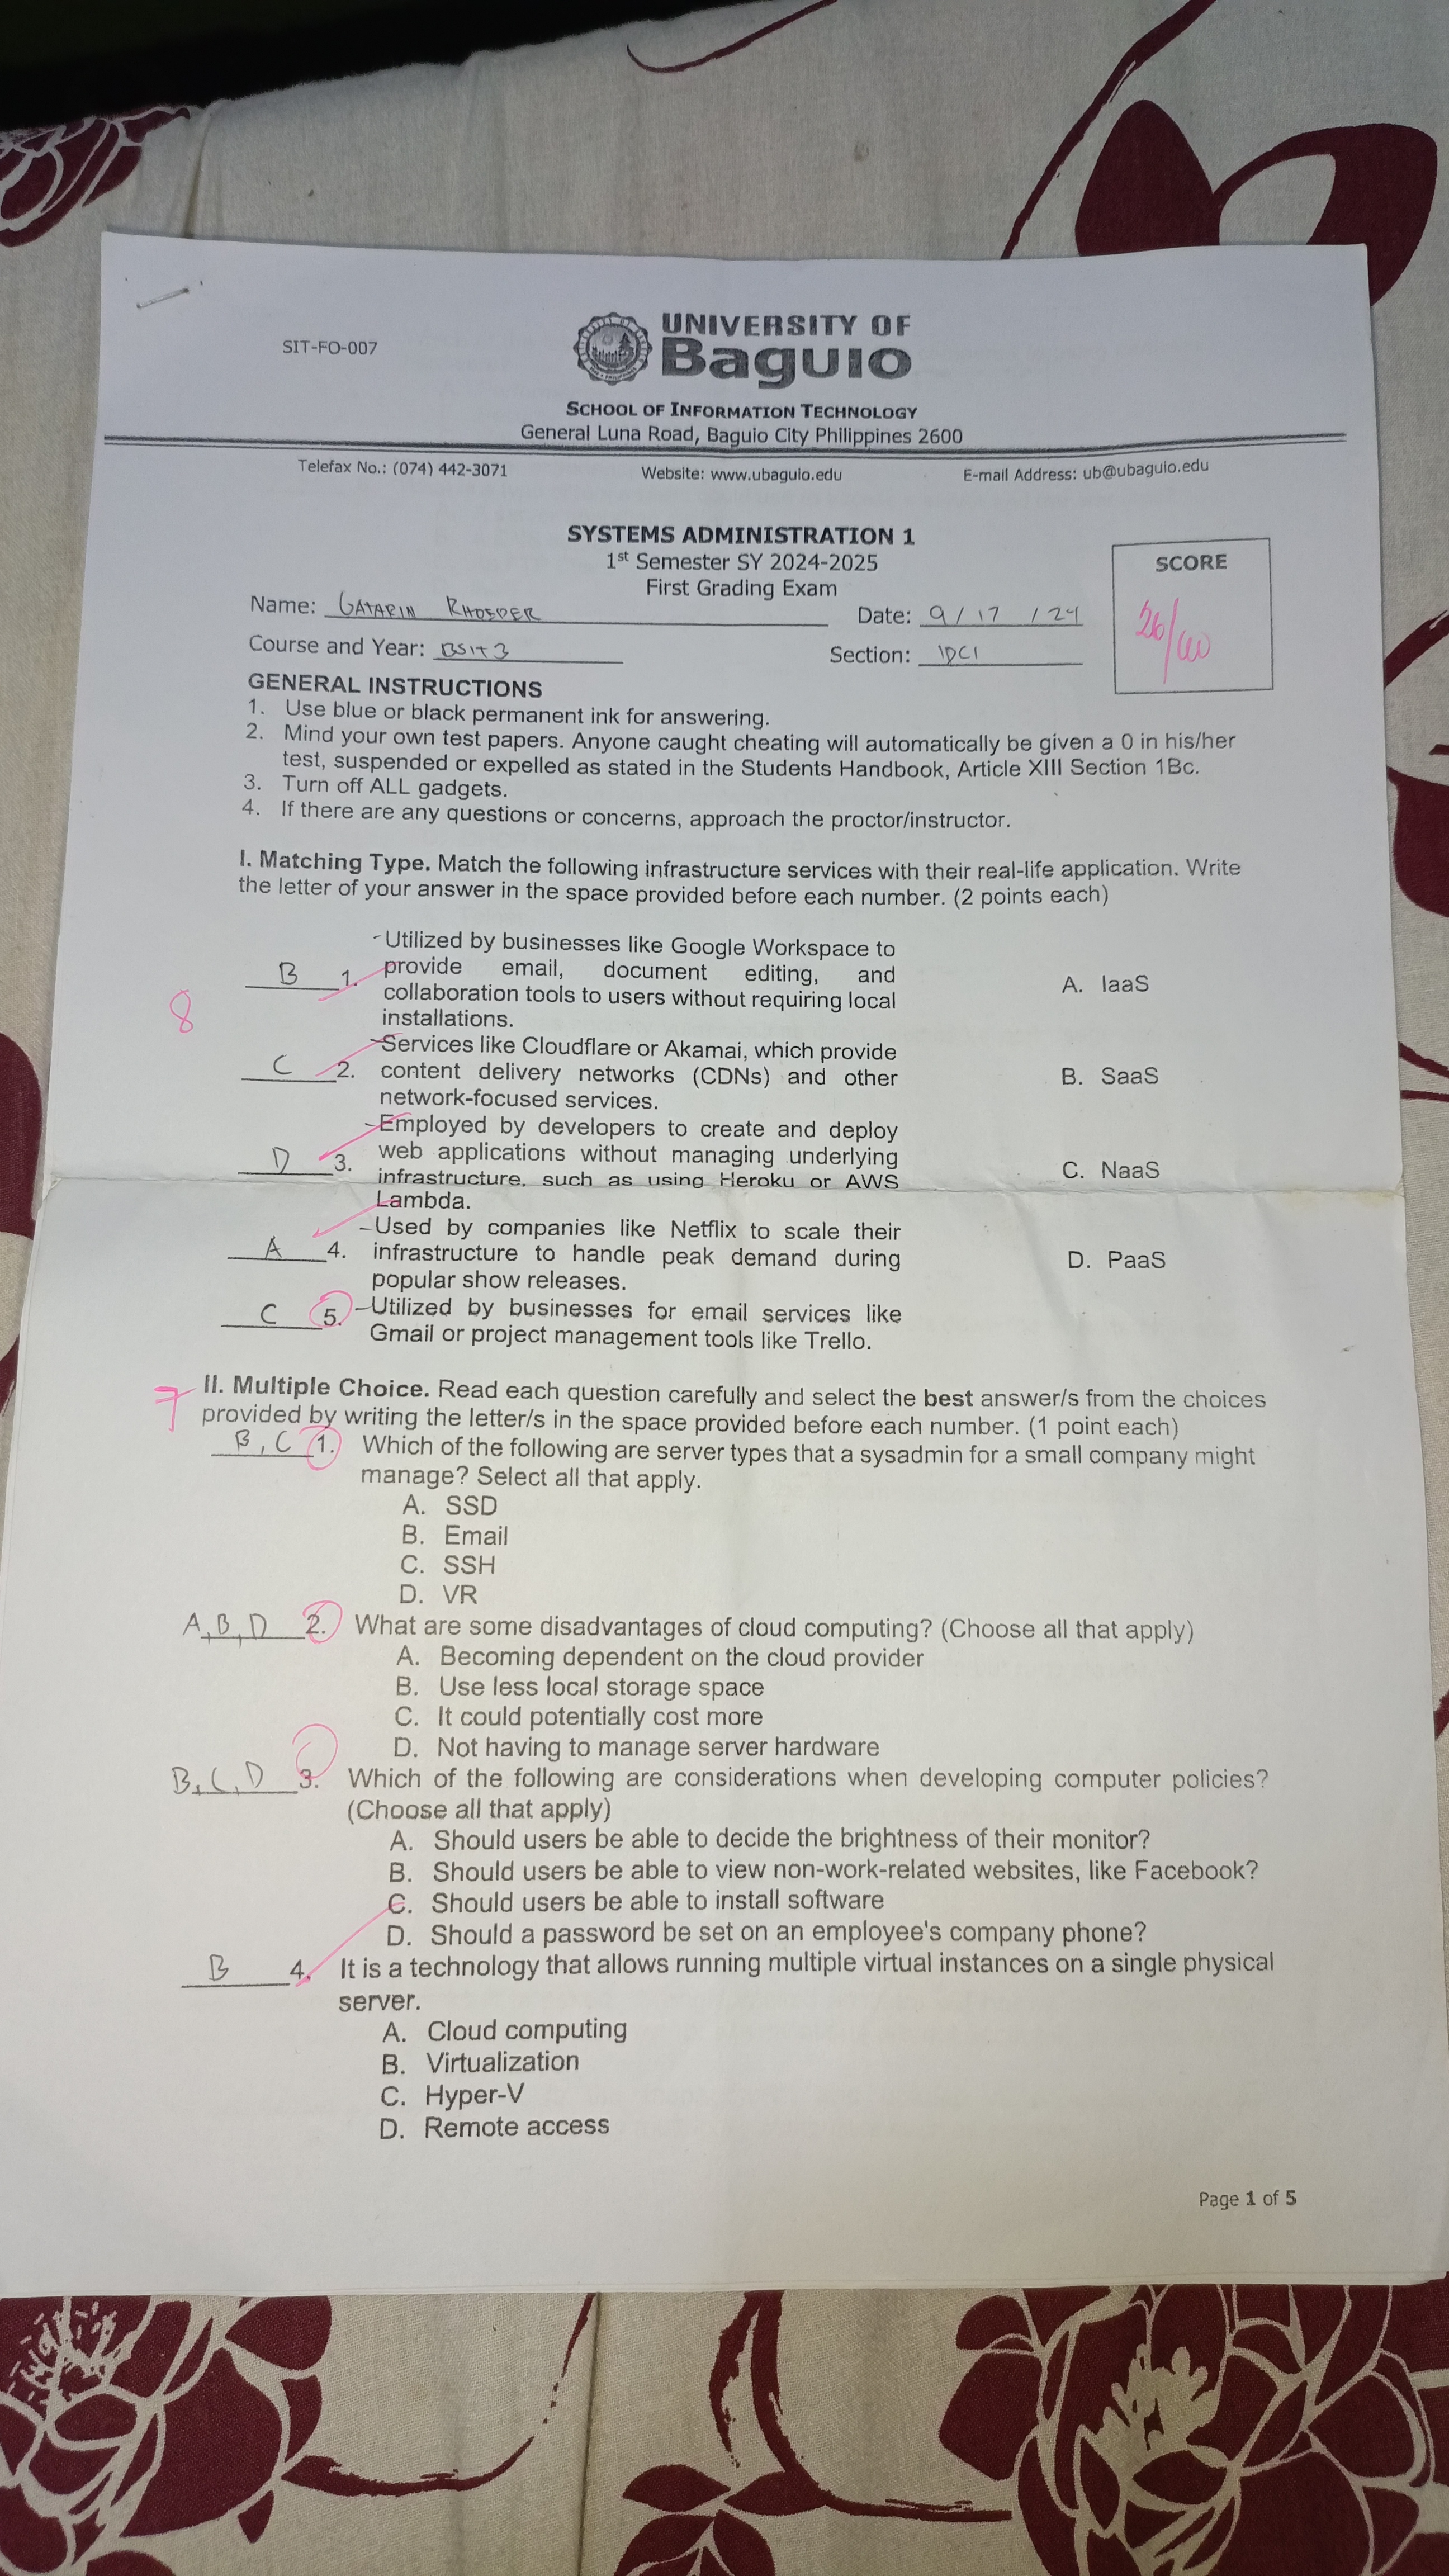 SIT-FO-007
UNIVERSITY OF
Baguio
SCHOOL OF INFORMATION TECHNOLOGY
General Luna Road, Baguio City Philippines 2600
Telefax No.: (074) 442-3071 Website: www.ubaguio.edu E-mail Address: ub@ubaguio.edu
SYSTEMS ADMINISTRATION 1
1st Semester SY 2024-2025
First Grading Exam
SCORE
26/60
Name: GATARIN RHOEDER Date: 9/17/24
Course and Year: BSIT3 Section: IDC1
GENERAL INSTRUCTIONS
1. Use blue or black permanent ink for answering.
2. Mind your own test papers. Anyone caught cheating will automatically be given a 0 in his/her
test, suspended or expelled as stated in the Students Handbook, Article XIII Section 1Bc.
3. Turn off ALL gadgets.
4. If there are any questions or concerns, approach the proctor/instructor.
I. Matching Type. Match the following infrastructure services with their real-life application. Write
the letter of your answer in the space provided before each number. (2 points each)
8
B 1. Utilized by businesses like Google Workspace to
provide email, document editing, and
collaboration tools to users without requiring local
installations.
A. IaaS
C 2. Services like Cloudflare or Akamai, which provide
content delivery networks (CDNs) and other
network-focused services.
B. SaaS
D 3. Employed by developers to create and deploy
web applications without managing underlying
infrastructure, such as using Heroku or AWS
Lambda.
C. NaaS
A 4. Used by companies like Netflix to scale their
infrastructure to handle peak demand during
popular show releases.
D. PaaS
C 5. Utilized by businesses for email services like
Gmail or project management tools like Trello.
7
II. Multiple Choice. Read each question carefully and select the best answer/s from the choices
provided by writing the letter/s in the space provided before each number. (1 point each)
B, C 1. Which of the following are server types that a sysadmin for a small company might
manage? Select all that apply.
A. SSD
B. Email
C. SSH
D. VR
A, B, D 2. What are some disadvantages of cloud computing? (Choose all that apply)
A. Becoming dependent on the cloud provider
B. Use less local storage space
C. It could potentially cost more
D. Not having to manage server hardware
B, C, D 3. Which of the following are considerations when developing computer policies?
(Choose all that apply)
A. Should users be able to decide the brightness of their monitor?
B. Should users be able to view non-work-related websites, like Facebook?
C. Should users be able to install software
D. Should a password be set on an employee's company phone?
B 4. It is a technology that allows running multiple virtual instances on a single physical
server.
A. Cloud computing
B. Virtualization
C. Hyper-V
D. Remote access
Page 1 of 5